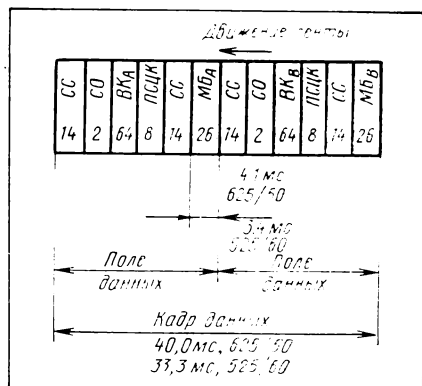 Движение ленты
СС СО ВКА ПСЦК СС МБА СС СО ВКВ ПСЦК СС МБВ
14 2 64 8 14 26 14 2 64 8 14 26
4,1 мс
625/50
3,4 мс
525/60
Поле данных
Поле данных
Кадр данных
40,0мс, 625/50
33,3мс, 525/60